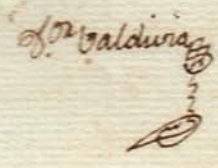 Sor. Valdivia